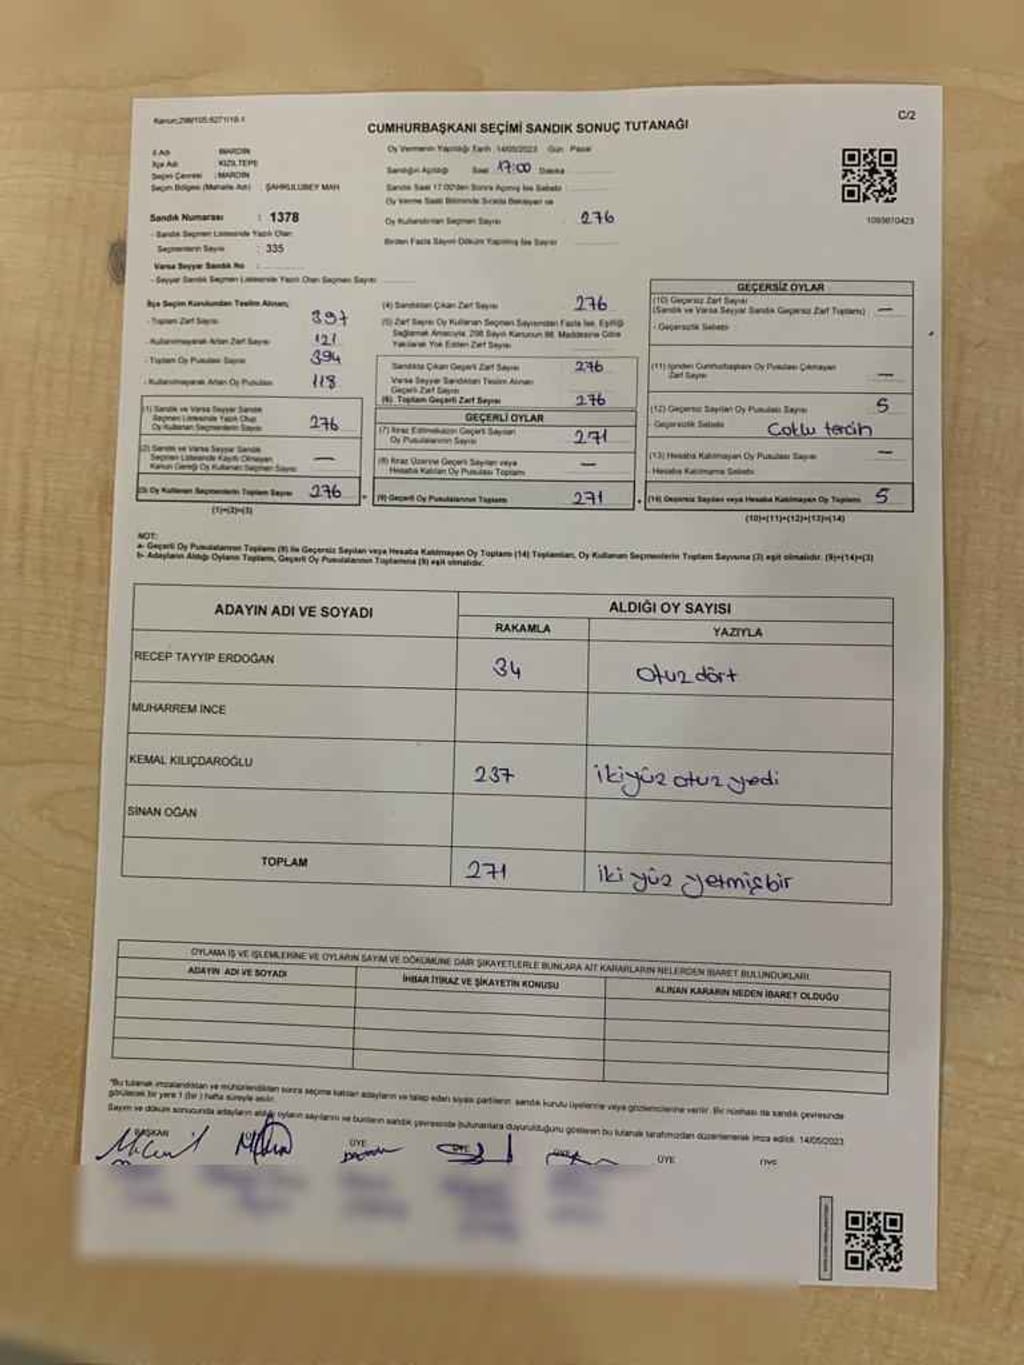 Kanun:298/105;6271/18-1
C/2
CUMHURBAŞKANI SEÇİMİ SANDIK SONUÇ TUTANAĞI
İl Adı : MARDİN
İlçe Adı : KIZILTEPE
Seçim Çevresi : MARDİN
Seçim Bölgesi (Mahalle Adı) : ŞAHKULUBEY MAH
Sandık Numarası : 1378
- Sandık Seçmen Listesinde Yazılı Olan
Seçmenlerin Sayısı : 335
Varsa Seyyar Sandık No :
- Seyyar Sandık Seçmen Listesinde Yazılı Olan Seçmen Sayısı
Oy Vermenin Yapıldığı Tarih :14/05/2023 Gün :Pazar
Sandığın Açıldığı Saat 17:00 Dakika
Sandık Saat 17.00'den Sonra Açılmış İse Sebebi
Oy Verme Saati Bitiminde Sırada Bekleyen ve
Oy Kullandırılan Seçmen Sayısı : 276
Birden Fazla Sayım Döküm Yapılmış İse Sayısı
1093670423
İlçe Seçim Kurulundan Teslim Alınan;
- Toplam Zarf Sayısı 397
- Kullanılmayarak Artan Zarf Sayısı 121
- Toplam Oy Pusulası Sayısı 394
- Kullanılmayarak Artan Oy Pusulası 118
(1) Sandık ve Varsa Seyyar Sandık
Seçmen Listesinde Yazılı Olup
Oy Kullanan Seçmenlerin Sayısı 276
(2) Sandık ve Varsa Seyyar Sandık
Seçmen Listesinde Kayıtlı Olmayan
Kanun Gereği Oy Kullanan Seçmen Sayısı —
(3) Oy Kullanan Seçmenlerin Toplam Sayısı 276
(1)+(2)=(3)
(4) Sandıktan Çıkan Zarf Sayısı 276
(5) Zarf Sayısı Oy Kullanan Seçmen Sayısından Fazla İse, Eşitliği
Sağlamak Amacıyla, 298 Sayılı Kanunun 98. Maddesine Göre
Yakılarak Yok Edilen Zarf Sayısı
Sandıkta Çıkan Geçerli Zarf Sayısı 276
Varsa Seyyar Sandıktan Teslim Alınan
Geçerli Zarf Sayısı
(6) Toplam Geçerli Zarf Sayısı 276
GEÇERLİ OYLAR
(7) İtiraz Edilmeksizin Geçerli Sayılan
Oy Pusulalarının Sayısı 271
(8) İtiraz Üzerine Geçerli Sayılan veya
Hesaba Katılan Oy Pusulası Toplamı —
(9) Geçerli Oy Pusulalarının Toplamı 271
GEÇERSİZ OYLAR
(10) Geçersiz Zarf Sayısı
(Sandık ve Varsa Seyyar Sandık Geçersiz Zarf Toplamı) —
- Geçersizlik Sebebi
(11) İçinden Cumhurbaşkanı Oy Pusulası Çıkmayan
Zarf Sayısı —
(12) Geçersiz Sayılan Oy Pusulası Sayısı 5
- Geçersizlik Sebebi Çoklu tercih
(13) Hesaba Katılmayan Oy Pusulası Sayısı —
Hesaba Katılmama Sebebi
(14) Geçersiz Sayılan veya Hesaba Katılmayan Oy Toplamı 5
(10)+(11)+(12)+(13)=(14)
NOT:
a- Geçerli Oy Pusulalarının Toplamı (9) ile Geçersiz Sayılan veya Hesaba Katılmayan Oy Toplamı (14) Toplamları, Oy Kullanan Seçmenlerin Toplam Sayısına (3) eşit olmalıdır. (9)+(14)=(3)
b- Adayların Aldığı Oyların Toplamı, Geçerli Oy Pusulalarının Toplamına (9) eşit olmalıdır.
ADAYIN ADI VE SOYADI
ALDIĞI OY SAYISI
RAKAMLA
YAZIYLA
RECEP TAYYİP ERDOĞAN 34 otuz dört
MUHARREM İNCE
KEMAL KILIÇDAROĞLU 237 ikiyüz otuz yedi
SİNAN OĞAN
TOPLAM 271 iki yüz yetmişbir
OYLAMA İŞ VE İŞLEMLERİNE VE OYLARIN SAYIM VE DÖKÜMÜNE DAİR ŞİKAYETLERLE BUNLARA AİT KARARLARIN NELERDEN İBARET BULUNDUKLARI
ADAYIN ADI VE SOYADI
İHBAR İTİRAZ VE ŞİKAYETİN KONUSU
ALINAN KARARIN NEDEN İBARET OLDUĞU
"Bu tutanak imzalandıktan ve mühürlendikten sonra seçime katılan adayların ve talep eden siyasi partilerin sandık kurulu üyelerine veya gözlemcilerine verilir. Bir nüshası da sandık çevresinde
görülecek bir yere 1 (bir) hafta süreyle asılır.
Sayım ve döküm sonucunda adayların aldığı oyların sayılarını ve bunların sandık çevresinde bulunanlara duyurulduğunu gösteren bu tutanak tarafımızdan düzenlenerek imza edildi. 14/05/2023
BAŞKAN
ÜYE
ÜYE
ÜYE
ÜYE
ÜYE